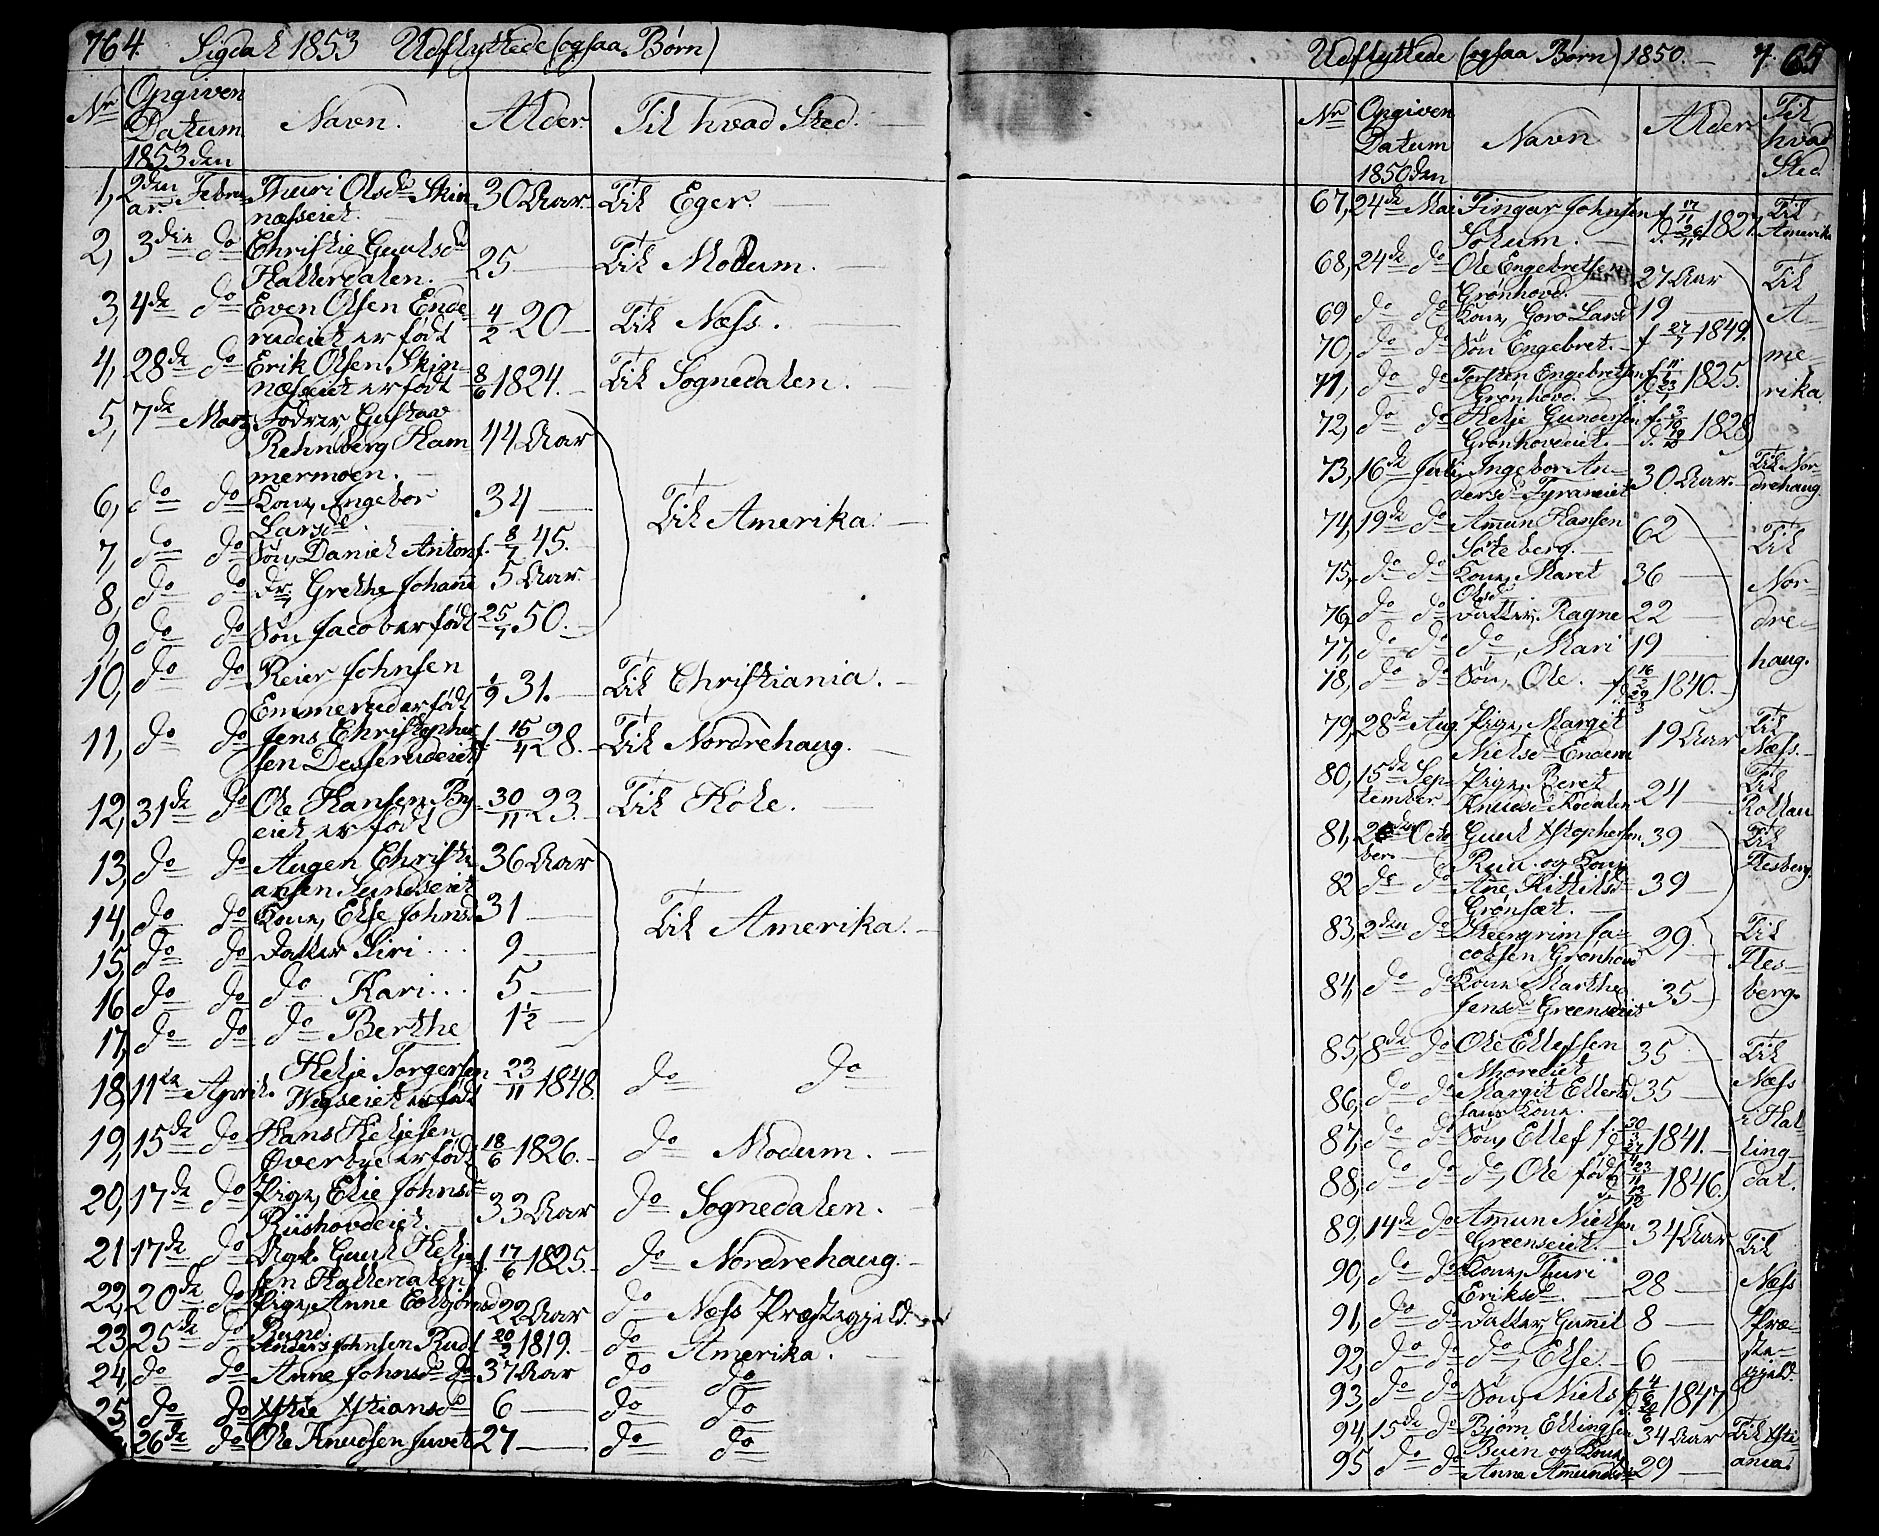 764 Sigdal 1853 Udflyttede (ogsaa Børn)
Nr Opgiven Datum 1853 den Navn. Alder. Til hvad Sted.
1, 2den Februar. Thuri Olsd. Skinnæsseiet. 30 Aar. Til Eger.
2, 3die do Christie Gulsd. Hatterdalen. 25 Til Modum.
3, 4de do Even Olsen Enderudeiet er født 4/2 20 Til Næss.
4, 28de do Erik Olsen Skinnæseiet er født 8/6 1824. Til Sognedalen.
5, 7de Marz Gustav Rehnberg Hammermoen. 44 Aar
6, do do Kone, Ingebor Larsd 34
7, do do Søn, Daniel Anton f. 8/7 45.
8, do do dr., Grethe Johane 5 Aar.
9, do do Søn Jacob er født 25/7 50.
Til Amerika.
10, do do Reier Johnsen Emmerud er født 1/9 31. Til Christiania.
11, do do Jens Christophersen f. 15/4 28. Til Nordrehaug.
12, 31de do Ole Hansen Byeiet er født 30/11 23. Til Hole.
13, do do Augen Christiansen Lundseiet 36 Aar
14, do do Kone, Else Johnsd 31
15, do do Datter Siri 9
16 do do do Kari 5
17, do do do Berthe 1½
Til Amerika.
18, 11te April. Helje Torgersen er født 23/11 1848. do do
19, 15de do Hans Heljesen Øverbye er født 18/6 1826. do Modum.
20, 17de do Pige, Elie Johnsd Riishovdeiet. 33 Aar do Sognedalen.
21 17de do Ungk. Gunl Heljesen Hatterdalen f. 17/6 1825. do Nordrehaug.
22, 20de do Pige, Anne Rund. 22 Aar do Næss Præstegjeld.
23 25de do Anders Johnsen Rud f 20/2 1819. do Amerika.
24, do do Anne Johnsd do 37 Aar do do
25, do do Xstie Xstiansd 6 do do
26de do Ole Knudsen Juvet 27 do do
Udflyttede (ogsaa Børn) 1850. 765
Nr Opgiven Datum 1850 den Navn Alder Til hvad Sted
67, 24de Mai Fingar Johnsen Solum. f 17/11 d. 26/11 1827. Til Amerika
68, 24de do Ole Engebretsen Grønhovd. 27 Aar
69 do do Kone, Goro Larsd 19
70, do do Søn Engebret. f 27/7 1849.
71, do do Torsten Engebretsen Grønhovd. 1825.
72, do do Helje Gundersen Grønhovdeiet. 1828
Til Amerika.
73, 16de Juli Ingebor Andersd 30 Aar. Til Nordrehaug.
74, 19de do Amun Hansen Sørteberg. 62
75, do do Kone, Maret Olsd 36
76, do do datter, Ragne 22
77, do do do, Mari 19
78, do do Søn, Ole. 1840.
Til Nordrehaug.
79, 28de Aug. Pige, Margit Nielsd 19 Aar Til Næss.
80, 15de September Pige, Beret Knudsd 24 Til Rollau
81, October. Gunl Xstophersen Ruu og Kone 39
82 do do Ane Kittilsd Grønsæt. 39
Til Flesberg.
83, 2den do Steengrim Jacobsen Grønhovd 29.
84, do do Kone Marthe Jensd Greenseiet 35
Til Flesberg.
85, 8de do Ole Ellefsen Moreeiet 35
86, do do Margit Ellensd hans Kone. 35
87, do do Søn, Ellef 1841.
88, do do do, Ole født 1846.
Til Næss i Hallingdal.
89, 14de do Amun Nielsen Greenseiet. 34 Aar
90, do do Kone, Thuri Eriksd. 28
91, do do datter, Gunil 8
92, do do do, Else. 6
93, do do Søn, Niels 1847
Til Næss Præstegjeld.
94, 15de do Bjørn Ellingsen Buin og Kone 34 Aar
95 do do Anne Amundsd 29
Til Xstiania.